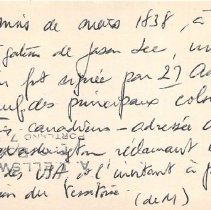 mois de mars 1838, à
gation de Jason Lee, un
fut signée par 27 A
uf des principaux colo
canadiens - adressée a
Washington réclamant
des USA et l'invitant à p
ion du territoire. (de M)